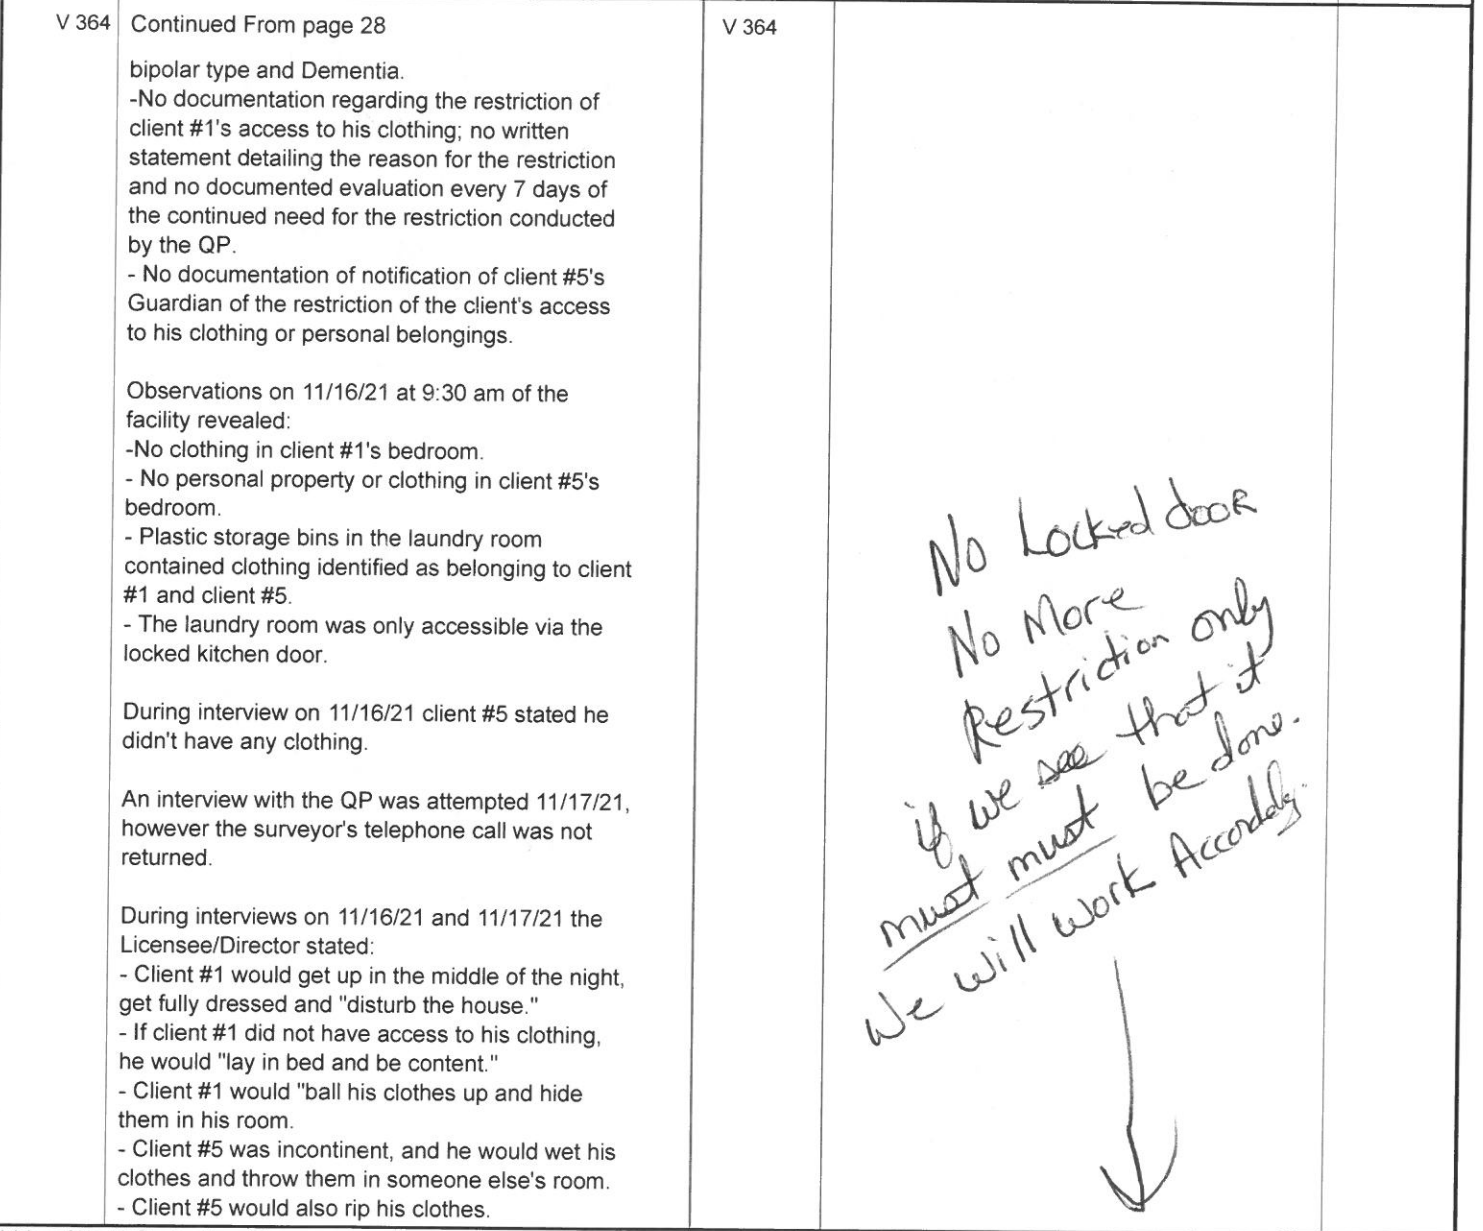 V 364 Continued From page 28 V 364
bipolar type and Dementia.
-No documentation regarding the restriction of
client #1's access to his clothing; no written
statement detailing the reason for the restriction
and no documented evaluation every 7 days of
the continued need for the restriction conducted
by the QP.
- No documentation of notification of client #5's
Guardian of the restriction of the client's access
to his clothing or personal belongings.
Observations on 11/16/21 at 9:30 am of the
facility revealed:
-No clothing in client #1's bedroom.
- No personal property or clothing in client #5's
bedroom.
- Plastic storage bins in the laundry room
contained clothing identified as belonging to client
#1 and client #5.
- The laundry room was only accessible via the
locked kitchen door.
During interview on 11/16/21 client #5 stated he
didn't have any clothing.
An interview with the QP was attempted 11/17/21,
however the surveyor's telephone call was not
returned.
During interviews on 11/16/21 and 11/17/21 the
Licensee/Director stated:
- Client #1 would get up in the middle of the night,
get fully dressed and "disturb the house."
- If client #1 did not have access to his clothing,
he would "lay in bed and be content."
- Client #1 would "ball his clothes up and hide
them in his room.
- Client #5 was incontinent, and he would wet his
clothes and throw them in someone else's room.
- Client #5 would also rip his clothes.
No Locked door
No More
Restriction only
if we see that it
must must be done.
We will work